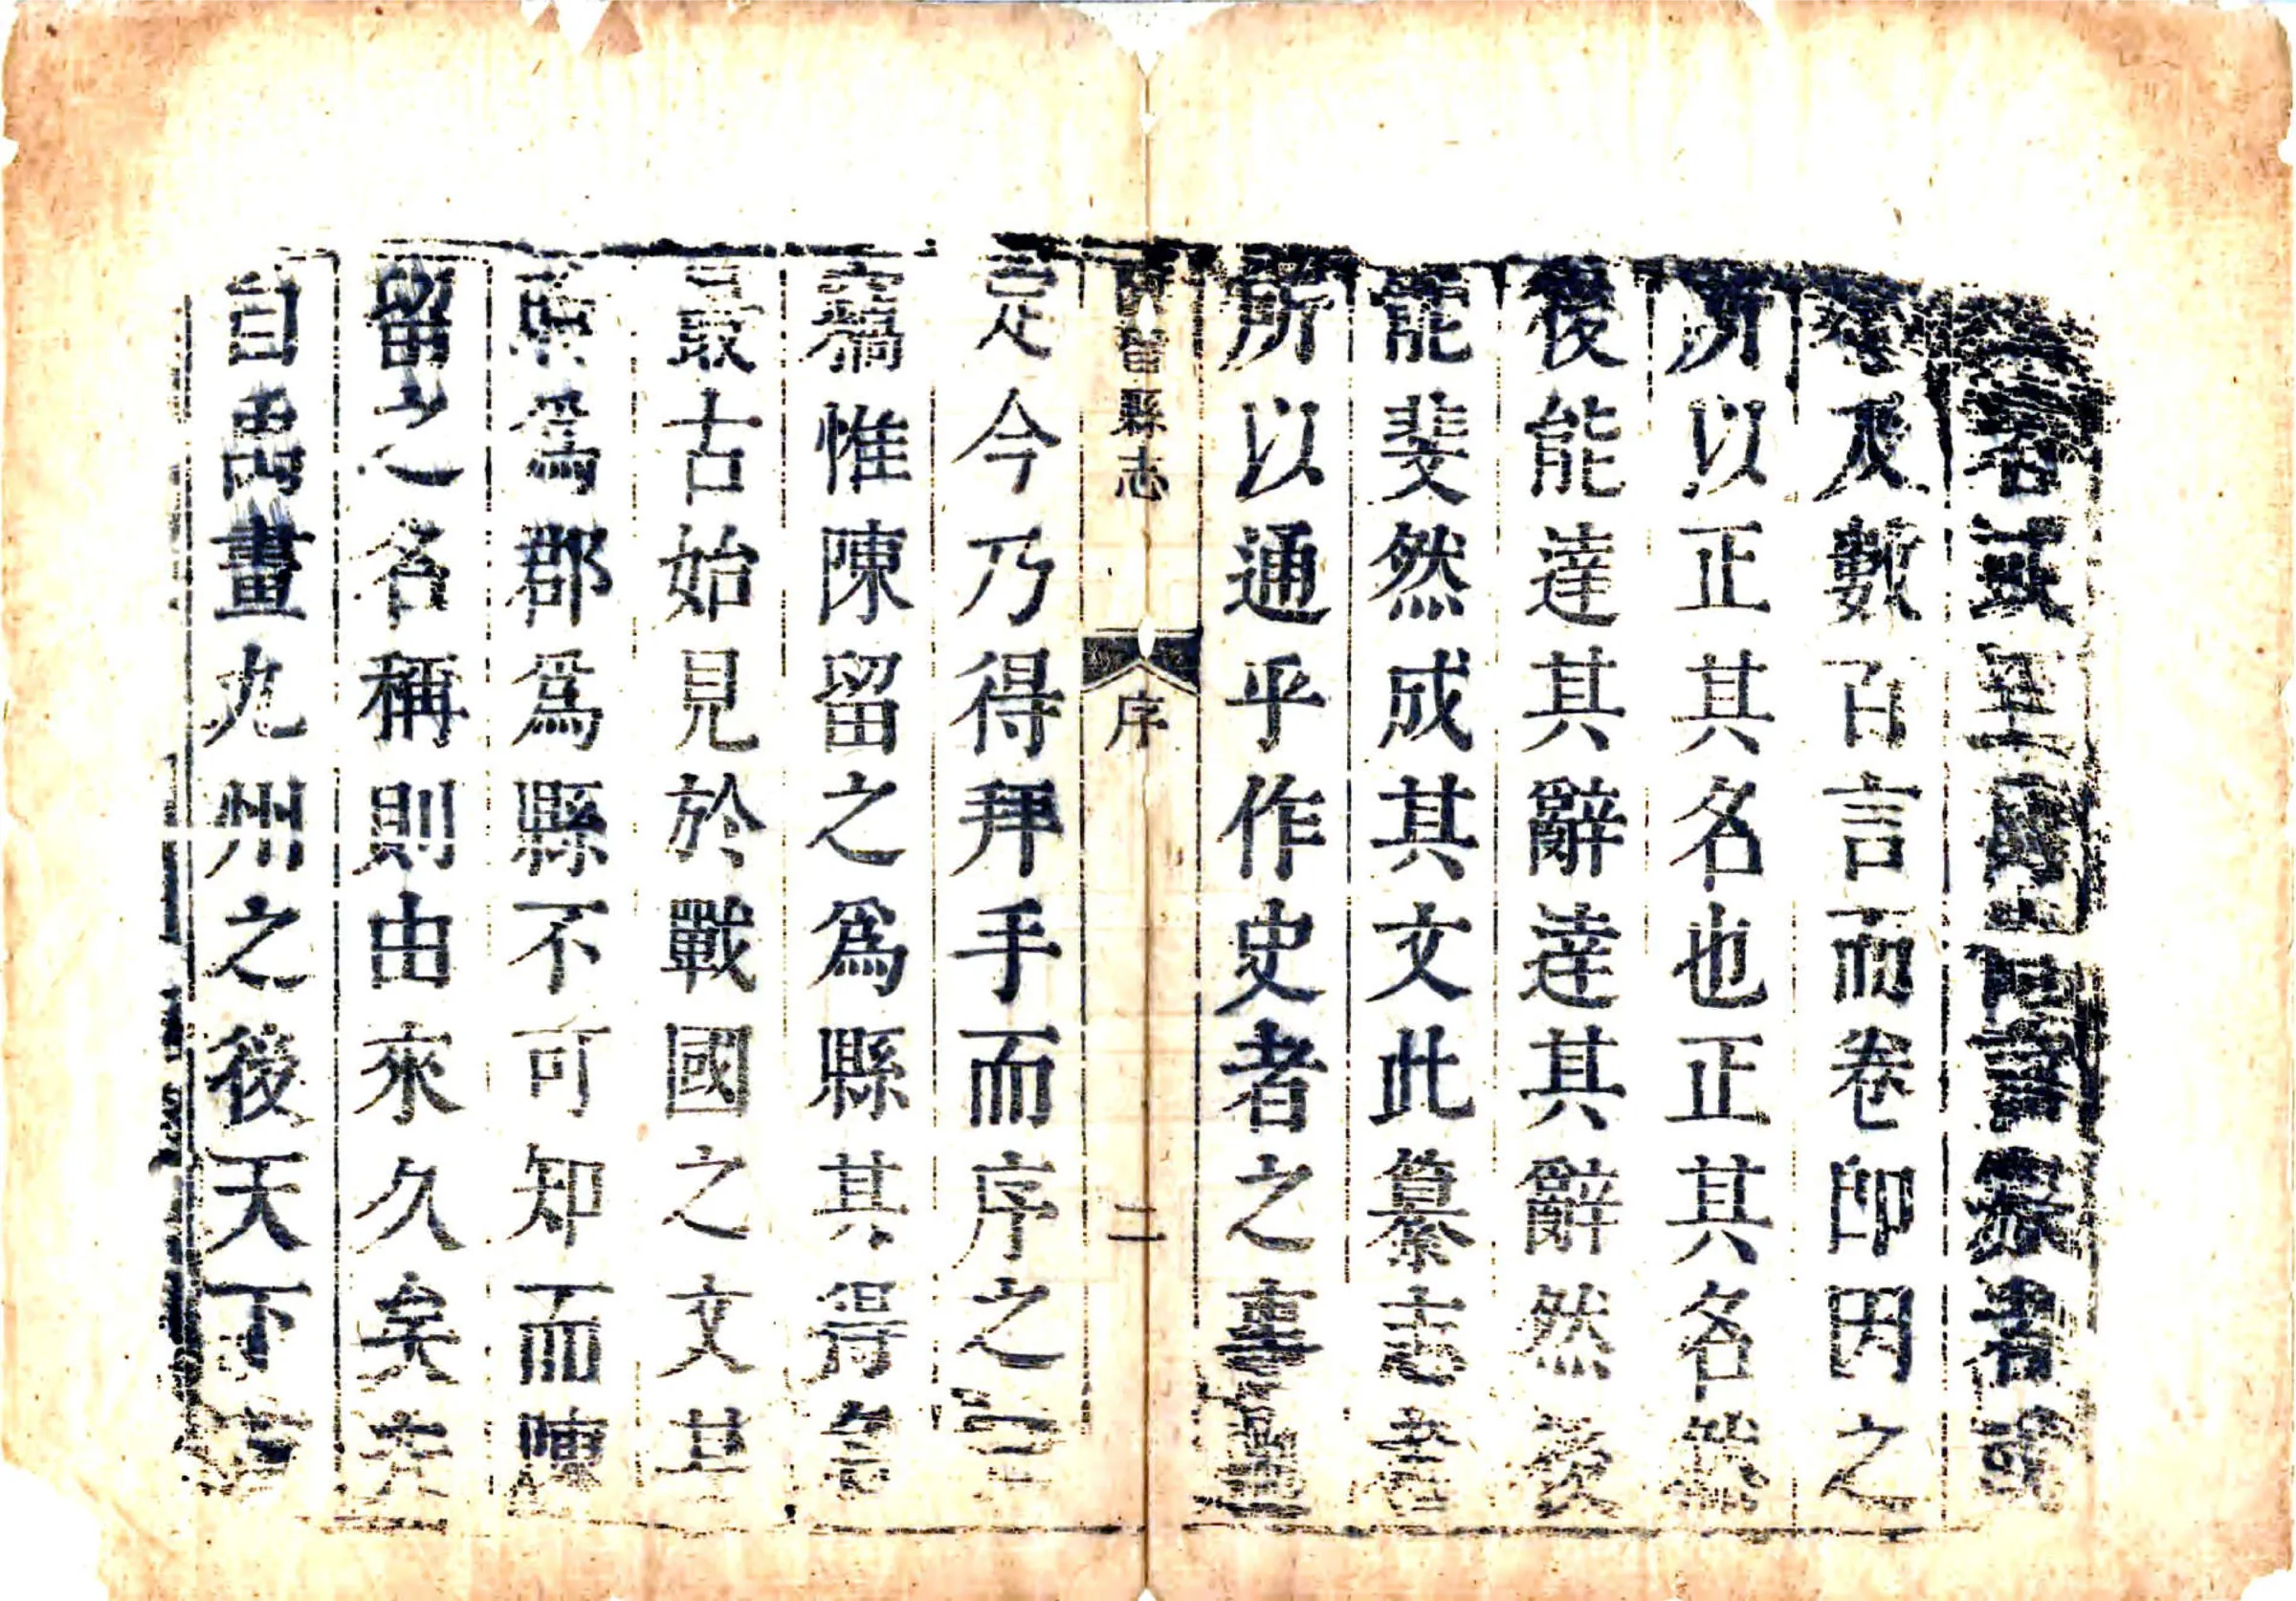 名或至國書或
不及數百言而卷即因之
所以正其名也正其名然
後能達其辭達其辭然後
能斐然成其文此纂志者
所以通乎作史者之事
陳留縣志 序 二
是今乃得拜手而序之曰
竊惟陳留之爲縣其得名
最古始見於戰國之文其
爲郡爲縣不可知而陳
留之名稱則由來久矣夫
自禹畫九州之後天下